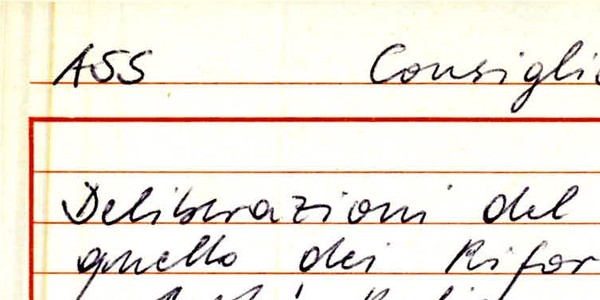 ASS Consigli
Deliberazioni del
quello dei Rifor